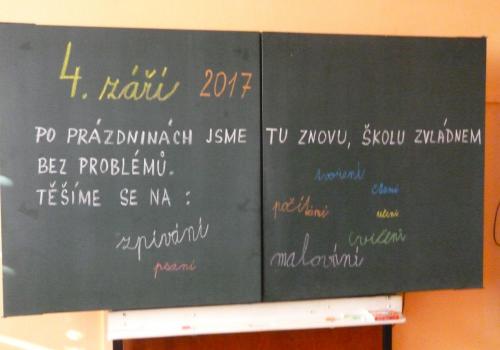 4. září 2017
PO PRÁZDNINÁCH JSME TU ZNOVU, ŠKOLU ZVLÁDNEM
BEZ PROBLÉMŮ.
TĚŠÍME SE NA :
zpívání
psaní
tvoření
čtení
počítání
učení
cvičení
malování